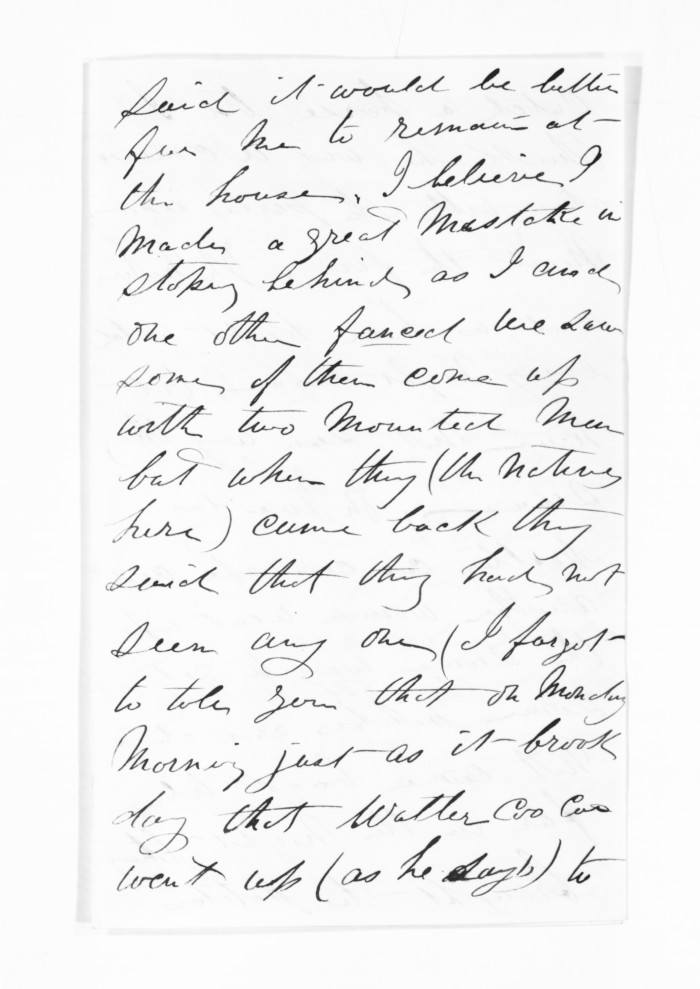 said it would be better
for me to remain at
the house. I believe I
made a great mastake in
stoping behind, as I and
one other fanced we saw
some of them come up
with two mounted men
but when they (the natives
here) came back they
said that they had not
seen any one (I forgot
to tole you that on Monday
Morning just as it brook
day that Watler Coo Coo
went up (as he says) to